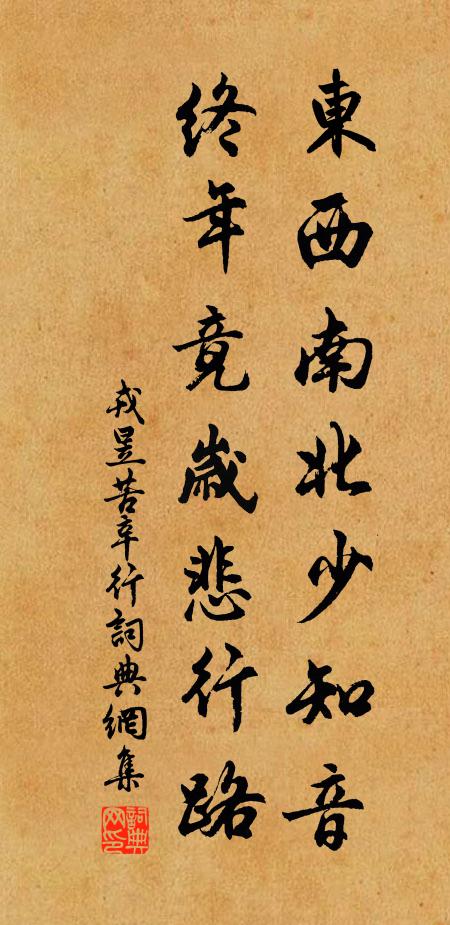 東西南北少知音
終年竟歲悲行路
戎昱苦辛行詞典網集
詞典網印